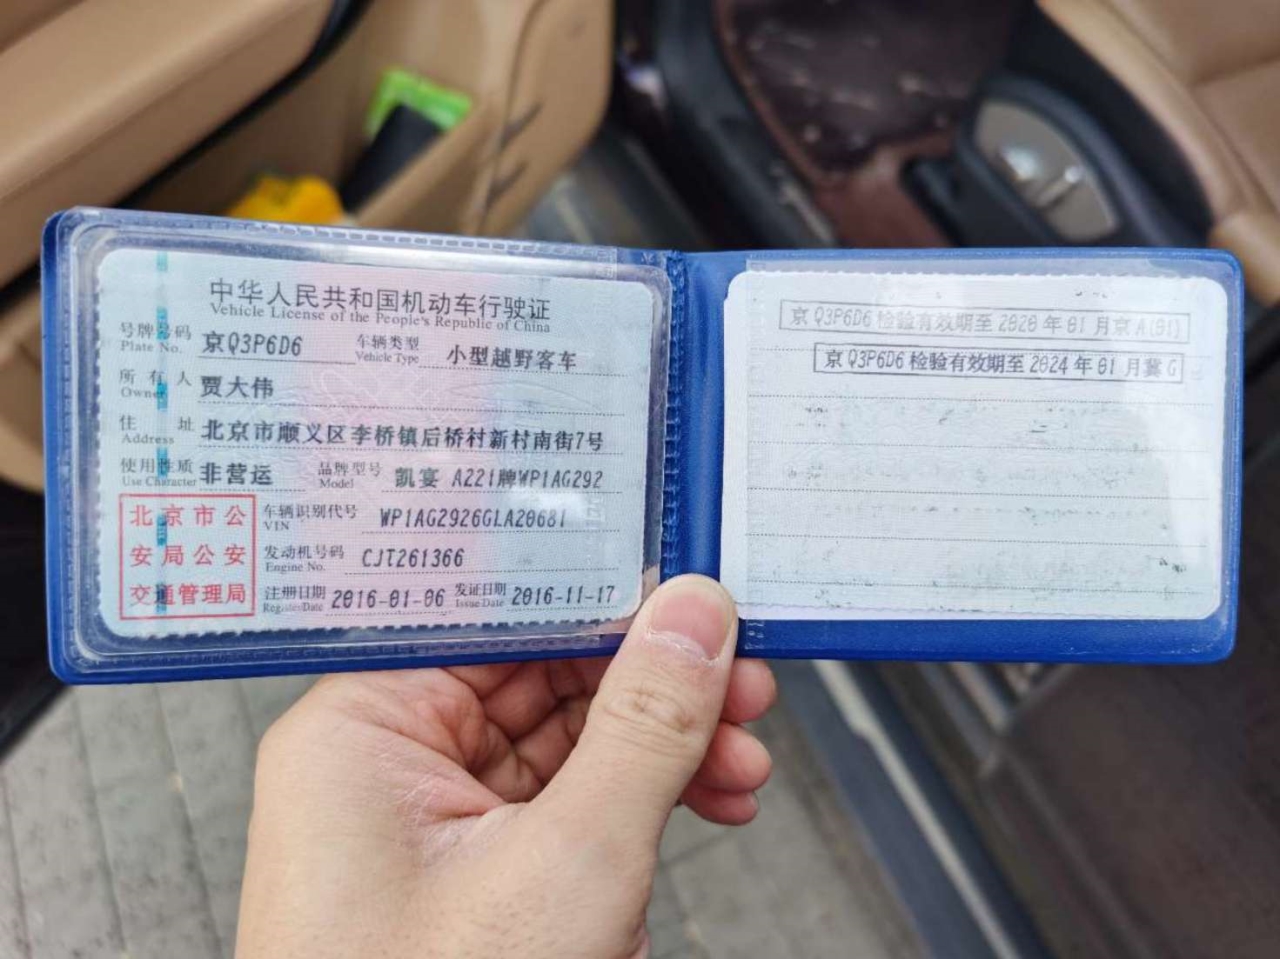 中华人民共和国机动车行驶证
Vehicle License of the People's Republic of China
号牌号码 京Q3P6D6 车辆类型 小型越野客车
Plate No. Vehicle Type
所有人 贾大伟
Owner
住址 北京市顺义区李桥镇后桥村新村南街7号
Address
使用性质 非营运 品牌型号 凯宴 A221牌WP1AG292
Use Character Model
北京市公
安局公安
交通管理局
车辆识别代号 WP1AG2926GLA20681
VIN
发动机号码 CJT261366
Engine No.
注册日期 2016-01-06 发证日期 2016-11-17
Register Date Issue Date
京Q3P6D6 检验有效期至 2020 年 01 月京 A(01)
京Q3P6D6 检验有效期至 2024 年 01 月冀 G